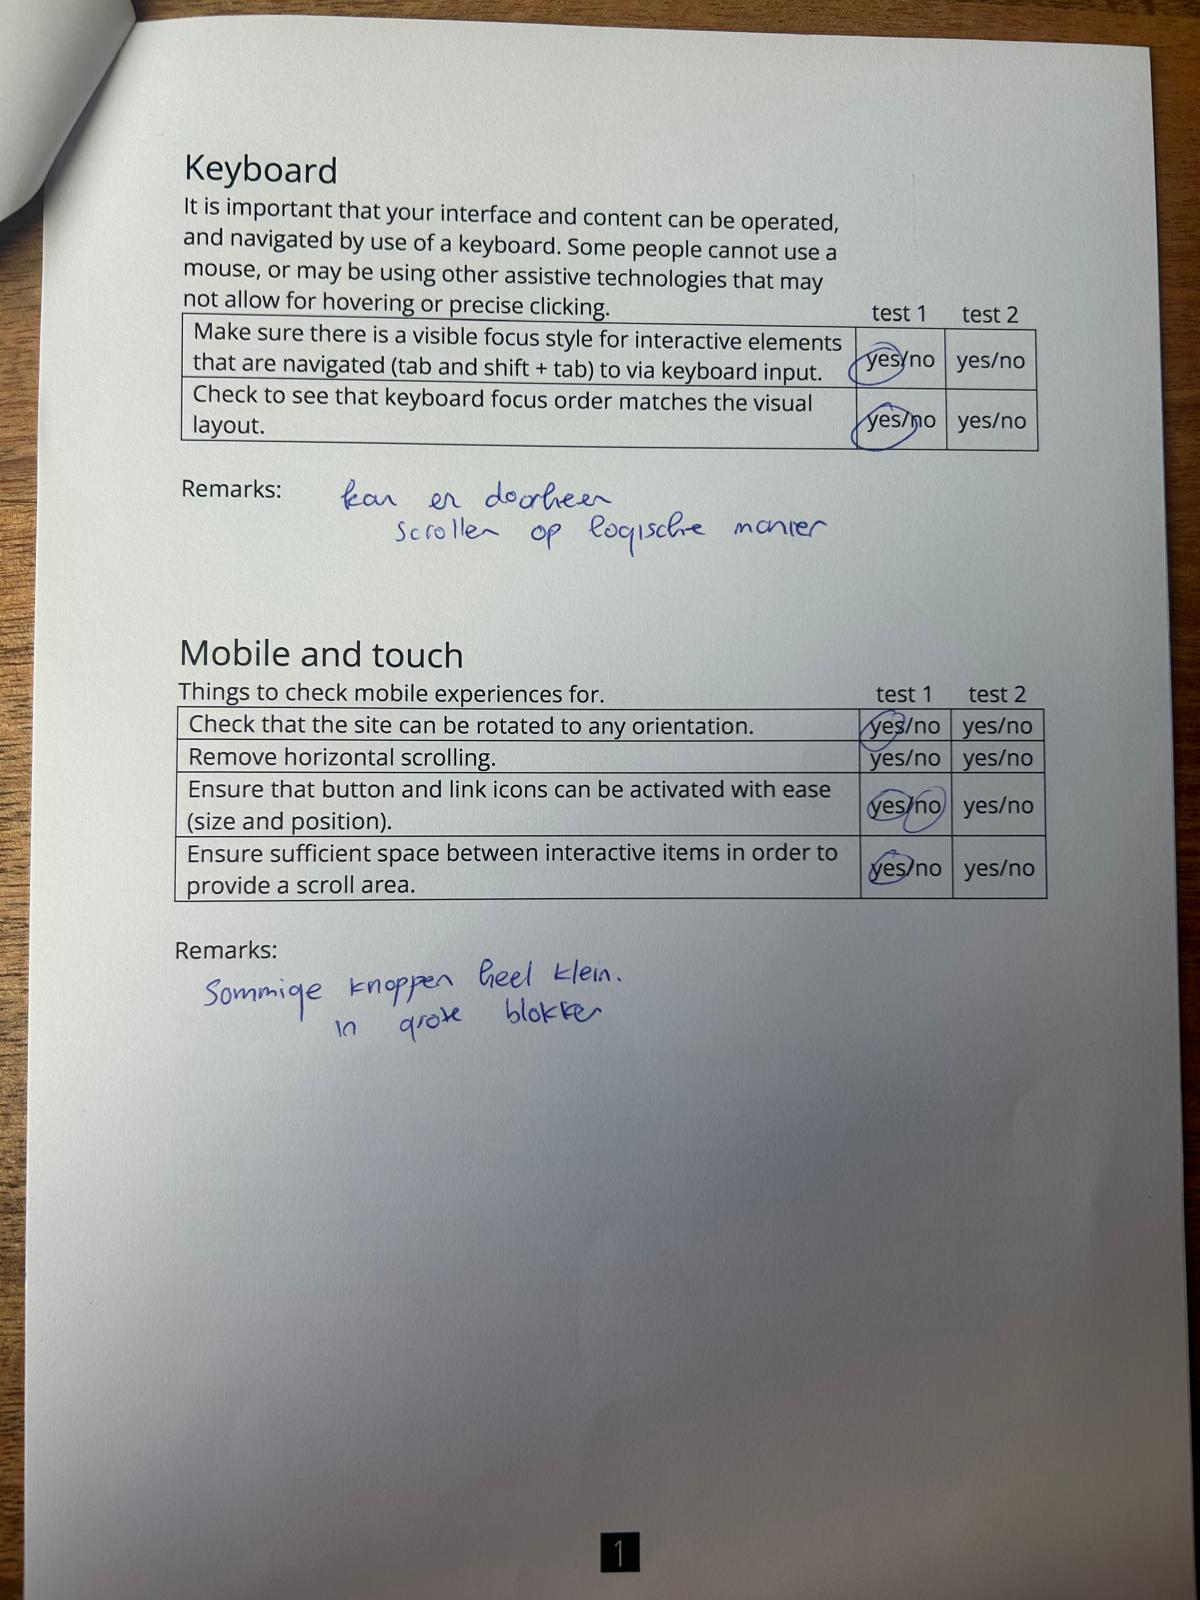 Keyboard
It is important that your interface and content can be operated,
and navigated by use of a keyboard. Some people cannot use a
mouse, or may be using other assistive technologies that may
not allow for hovering or precise clicking.
test 1 test 2
Make sure there is a visible focus style for interactive elements
that are navigated (tab and shift + tab) to via keyboard input.
yes/no yes/no
Check to see that keyboard focus order matches the visual
layout.
yes/no yes/no
Remarks: kan er doorheen
scrollen op logische manier
Mobile and touch
Things to check mobile experiences for. test 1 test 2
Check that the site can be rotated to any orientation. yes/no yes/no
Remove horizontal scrolling. yes/no yes/no
Ensure that button and link icons can be activated with ease
(size and position).
yes/no yes/no
Ensure sufficient space between interactive items in order to
provide a scroll area.
yes/no yes/no
Remarks:
Sommige knoppen heel klein.
in grote blokken
1